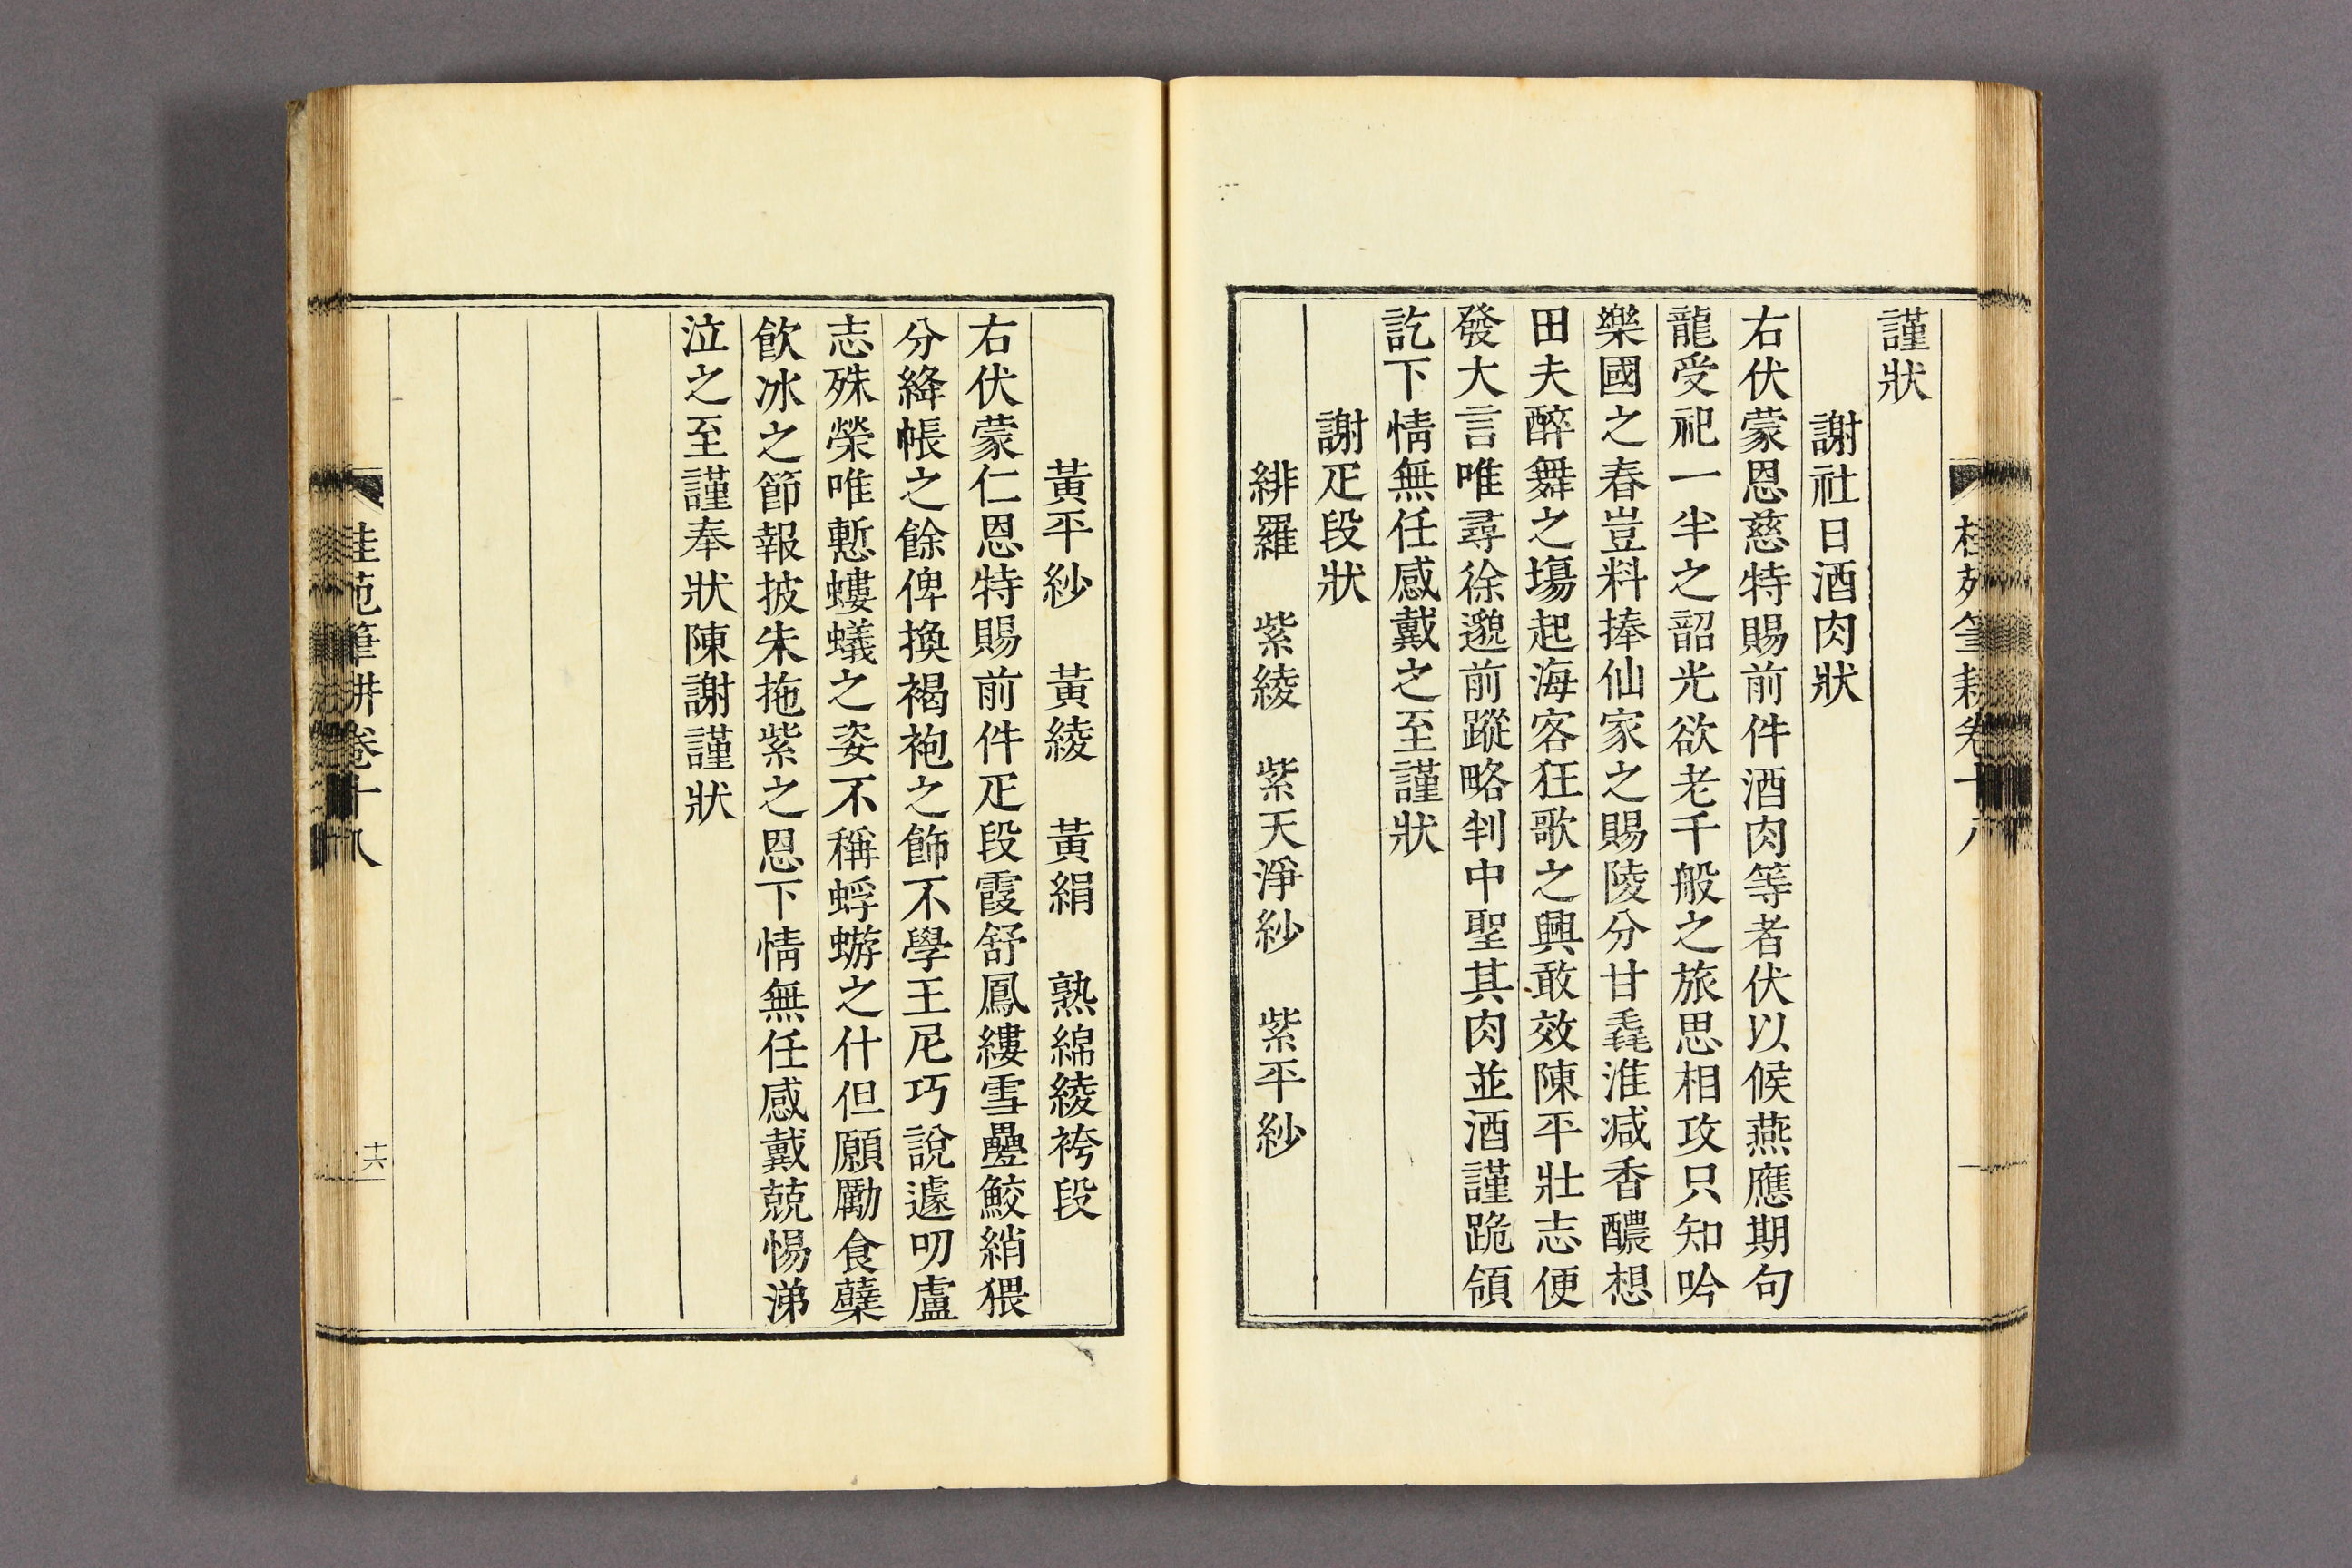 謹狀
謝社日酒肉狀
右伏蒙恩慈特賜前件酒肉等者伏以候燕應期句
龍受祀一半之韶光欲老千般之旅思相攻只知吟
樂國之春豈料捧仙家之賜陵分甘毳淮減香醲想
田夫醉舞之塲起海客狂歌之興敢效陳平壯志便
發大言唯尋徐邈前蹤略判中聖其肉並酒謹跪領
訖下情無任感戴之至謹狀
謝疋段狀
緋羅 紫綾 紫天淨紗 紫平紗
黃平紗 黃綾 黃絹 熟綿綾袴段
右伏蒙仁恩特賜前件疋段霞舒鳳縷雪疊鮫綃猥
分絳帳之餘俾換褐袍之飾不學王尼巧說遽叨盧
志殊榮唯慙螻蟻之姿不稱蜉蝣之什但願勵食蘗
飲冰之節報披朱拖紫之恩下情無任感戴兢惕涕
泣之至謹奉狀陳謝謹狀
桂苑筆耕卷十八
十六